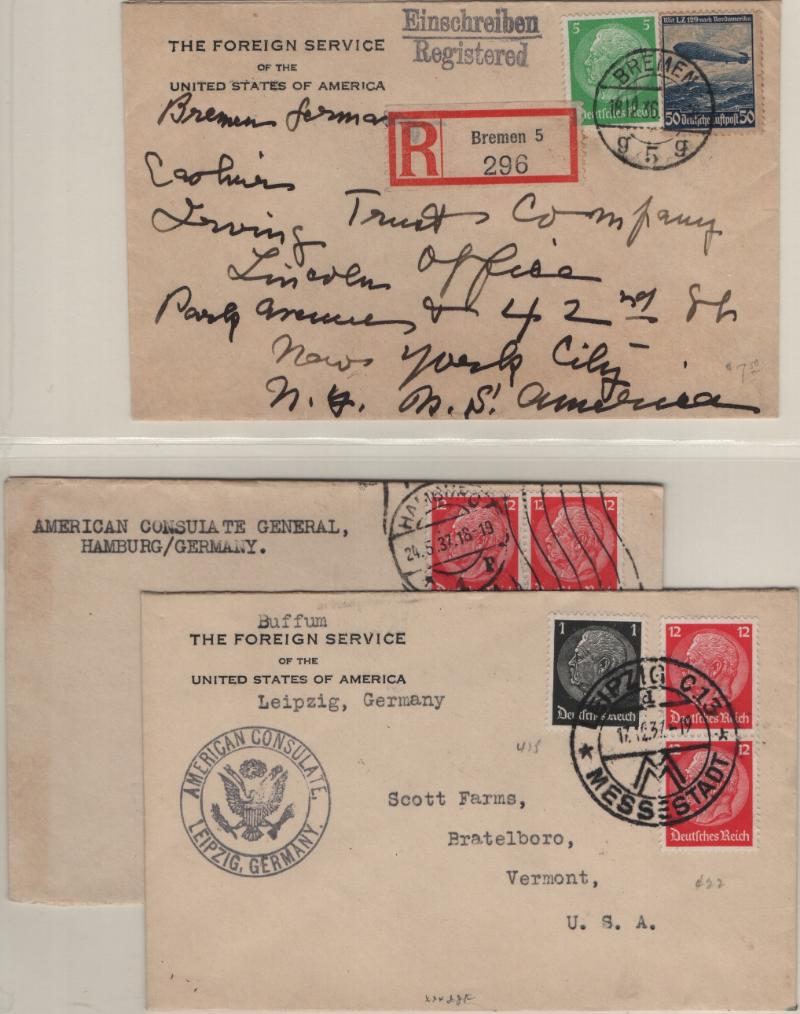 THE FOREIGN SERVICE
OF THE
UNITED STATES OF AMERICA
Einschreiben
Registered
5 5
Deutsches Reich
Mit LZ 129 nach Nordamerika
50 Deutsche Luftpost 50
BREMEN
g 5 g
R
Bremen 5
296
Bremen German
Cashier
Irving Trust Company
Lincoln Office
Park Avenue & 42nd St
New York City
N.Y. U.S. America
$7.50
AMERICAN CONSULATE GENERAL,
HAMBURG/GERMANY.
HAMBURG
24.5.37.18-19
12 12
Buffum
THE FOREIGN SERVICE
OF THE
UNITED STATES OF AMERICA
Leipzig, Germany
1 1
Deutsches Reich
12 12
Deutsches Reich
Deutsches Reich
LEIPZIG C13
MESSESTADT
AMERICAN CONSULATE,
LEIPZIG, GERMANY.
415
Scott Farms,
Bratelboro,
Vermont,
U. S. A.